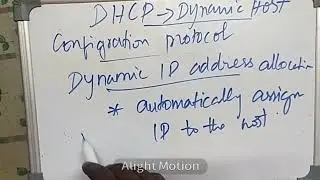 DHCP → Dynamic Host
Configration protocol
Dynamic IP address allocation
* automatically assign
IP to the host
Alight Motion